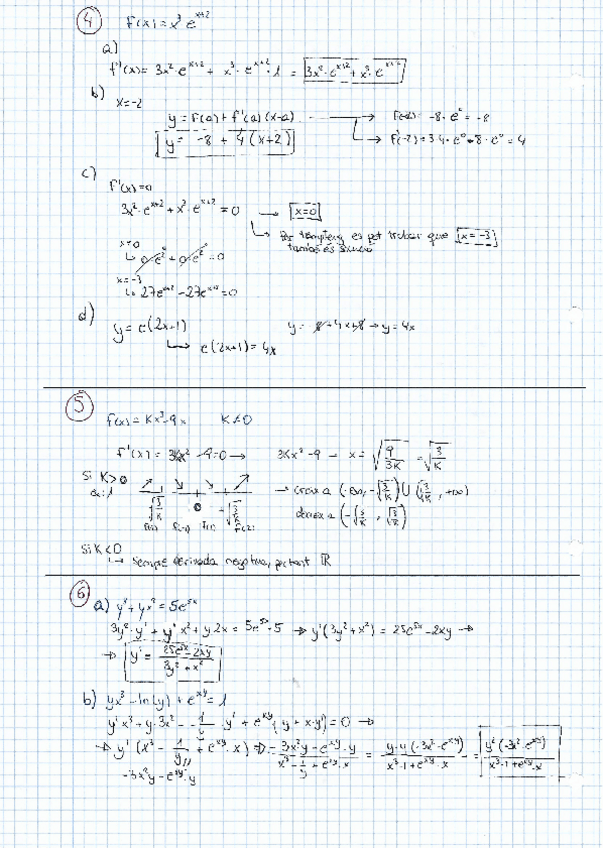 4 f(x) = x³ e^(x+2)
a)
f'(x) = 3x²·e^(x+2) + x³·e^(x+2)·1 = 3x²·e^(x+2) + x³·e^(x+2)
b)
x=-2
y = f(a) + f'(a)(x-a) → f(-2) = -8·e⁰ = -8
y = -8 + 4(x+2) → f'(-2) = 3·4·e⁰ + -8·e⁰ = 4
c)
f'(x)=0
3x²·e^(x+2) + x³·e^(x+2) = 0 → x=0
es pot trobar que x=-3
també és solució
x=0
↳ 0·e² + 0·e² = 0
x=-3
↳ 27e^(x+2) - 27e^(x+2) = 0
d)
y = e(2x+1) y = -8 + 4x + 8 → y = 4x
↳ e(2x+1) = 4x
5
f(x) = Kx³ - 9x K≠0
f'(x) = 3Kx² - 9 = 0 → 3Kx² - 9 → x = √(9/3K) = √(3/K)
Si K>0
→ creix a (-∞, -√(3/K)) ∪ (√(3/K), +∞)
decreix a (-√(3/K), √(3/K))
Si K<0
↳ sempre derivada negativa, per tant ℝ
6
a) y³ + yx² = 5e^(5x)
3y²·y' + y'x² + y2x = 5e^(5x)·5 → y'(3y² + x²) = 25e^(5x) - 2xy →
→ y' = (25e^(5x) - 2xy)/(3y² + x²)
b) yx³ - ln(y) + e^(xy) = 1
y'x³ + y·3x² - 1/y · y' + e^(xy)(y + x·y') = 0 →
→ y'(x³ - 1/y + e^(xy)·x) → = (-3x²y - e^(xy)·y)/(x³ - 1/y + e^(xy)·x) = (y·y(-3x²·e^(xy)))/(x³·1 + e^(xy)·x) = (y²(-3x²·e^(xy)))/(x³·1 + e^(xy)·x)
-3x²y - e^(xy)·y